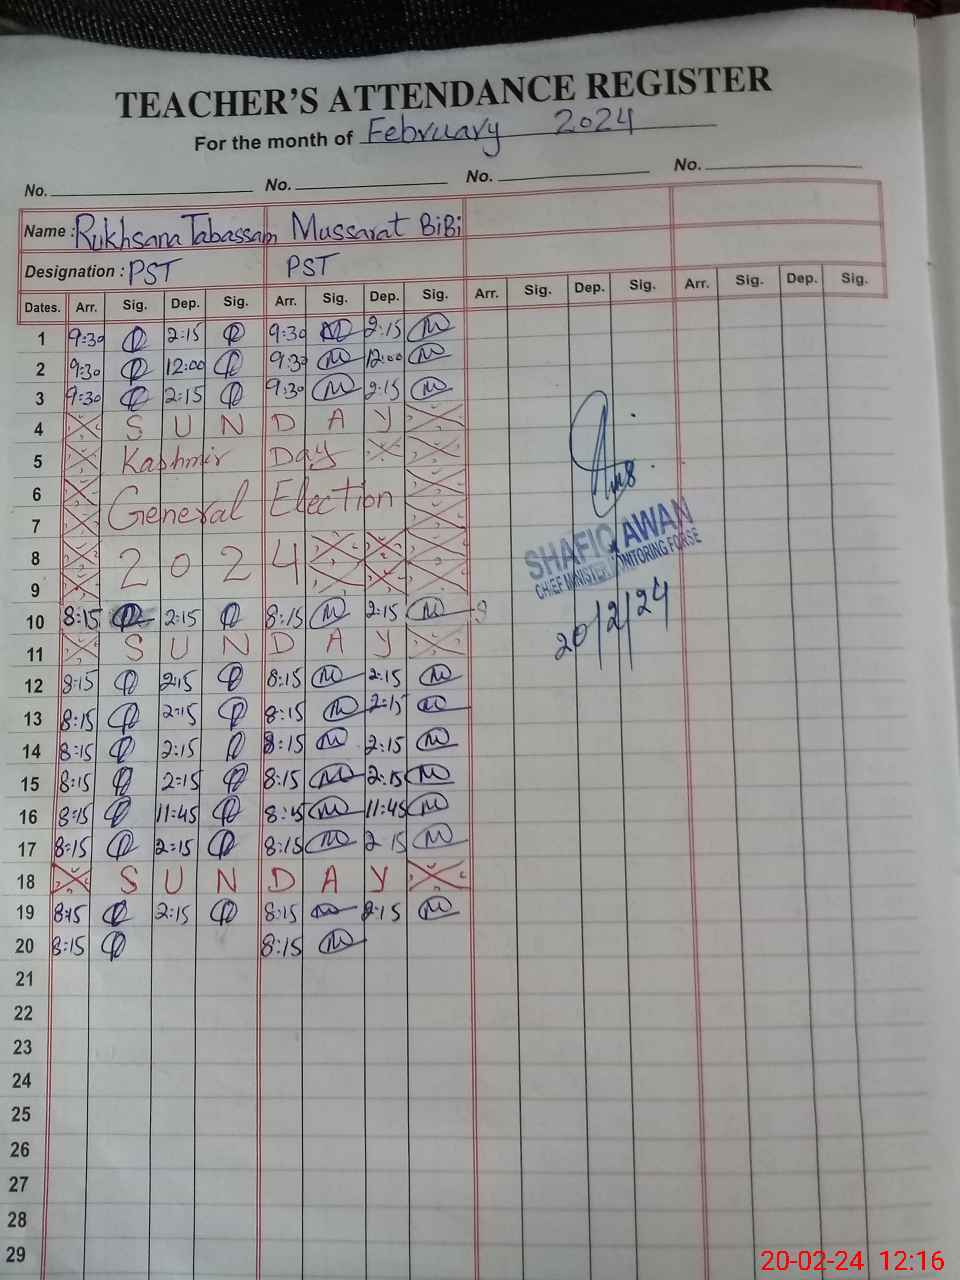 TEACHER'S ATTENDANCE REGISTER
For the month of February 2024
No. No. No. No.
Name : Rukhsana Tabassam Mussarat BiBi
Designation : PST PST
Dates. Arr. Sig. Dep. Sig. Arr. Sig. Dep. Sig. Arr. Sig. Dep. Sig. Arr. Sig. Dep. Sig.
1 9:30 2:15 9:30 2:15
2 9:30 12:00 9:30 12:00
3 9:30 2:15 9:30 2:15
4 S U N D A Y
5 Kashmir Day
6
General Election
7
8
2 0 2 4
9
10 8:15 2:15 8:15 2:15
11 S U N D A Y
12 8:15 2:15 8:15 2:15
13 8:15 2:15 8:15 2:15
14 8:15 2:15 8:15 2:15
15 8:15 2:15 8:15 2:15
16 8:15 11:45 8:15 11:45
17 8:15 2:15 8:15 2 15
18 S U N D A Y
19 8:15 2:15 8:15 2:15
20 8:15 8:15
21
22
23
24
25
26
27
28
29
SHAFIQ AWAN
CHIEF MINISTER MONITORING FORSE
20/2/24
20-02-24 12:16